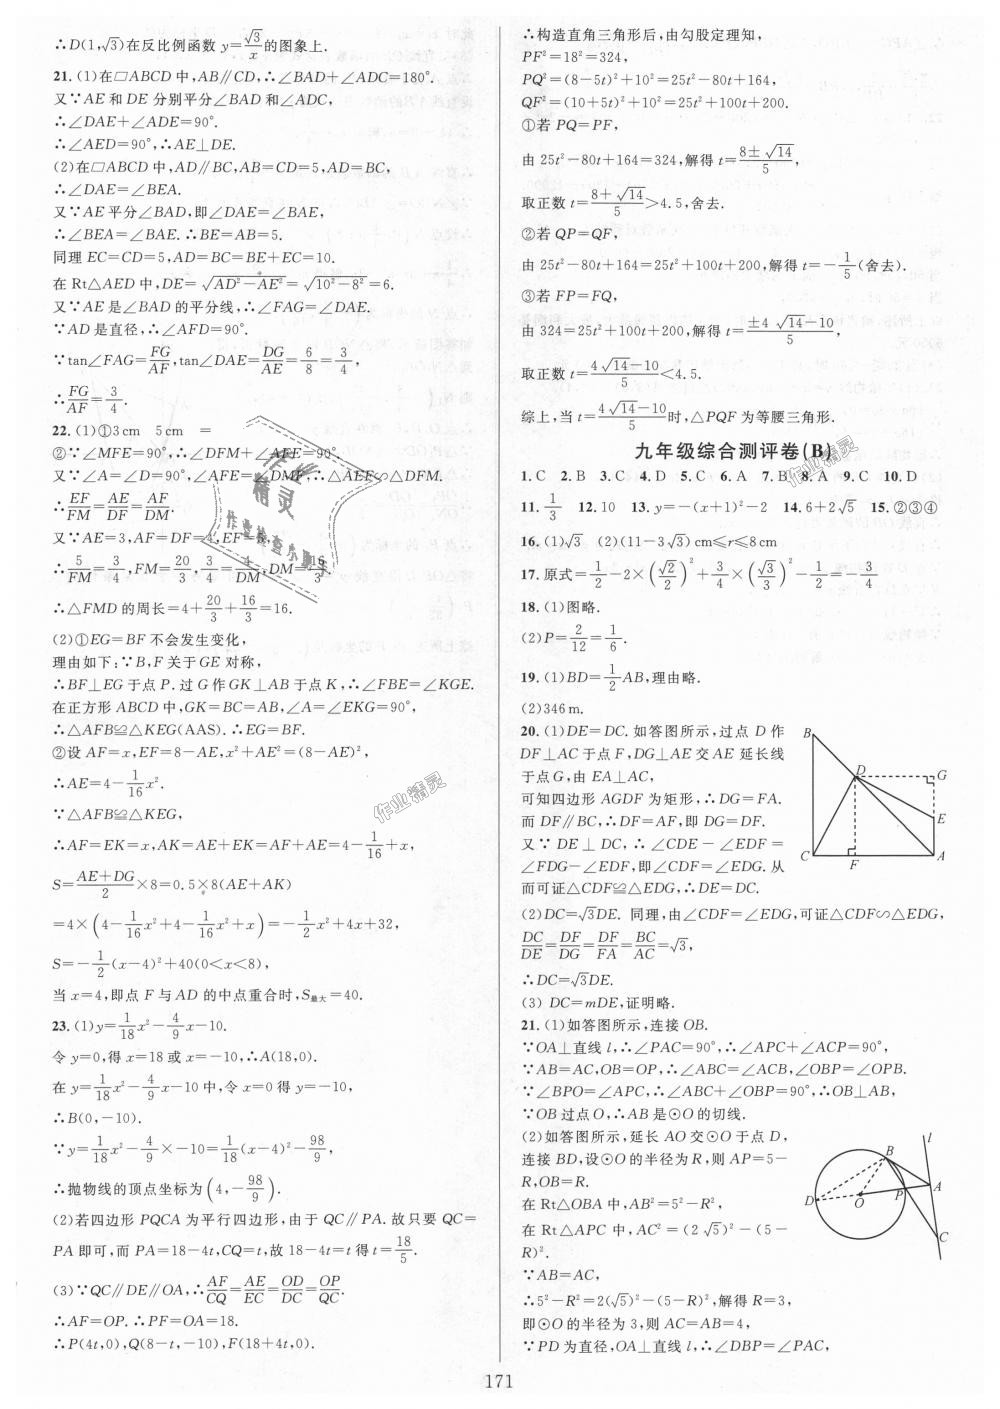 ∴D(1,√3)在反比例函数 y=√3/x 的图象上.
21. (1)在▱ABCD 中,AB∥CD,∴∠BAD+∠ADC=180°.
又∵AE 和 DE 分别平分∠BAD 和∠ADC,
∴∠DAE+∠ADE=90°.
∴∠AED=90°,∴AE⊥DE.
(2)在▱ABCD 中,AD∥BC,AB=CD=5,AD=BC,
∴∠DAE=∠BEA.
又∵AE 平分∠BAD,即∠DAE=∠BAE,
∴∠BEA=∠BAE.∴BE=AB=5.
同理 EC=CD=5,AD=BC=BE+EC=10.
在 Rt△AED 中,DE=√(AD²-AE²)=√(10²-8²)=6.
又∵AE 是∠BAD 的平分线,∴∠FAG=∠DAE.
∵AD 是直径,∴∠AFD=90°.
∵tan∠FAG=FG/AF,tan∠DAE=DG/AE=6/8=3/4,
∴FG/AF=3/4.
22. (1)①3cm 5cm =
②∵∠MFE=90°,∴∠DFM+∠AFE=90°.
又∵∠A=∠D=90°,∠AFE=∠DMF,∴△AEF∽△DFM.
∴EF/FM=AE/DF=AF/DM.
又∵AE=3,AF=DF=4,EF=5,
∴5/FM=3/4,FM=20/3 3/4=4/DM,DM=16/3
∴△FMD 的周长=4+20/3+16/3=16.
(2)①EG=BF 不会发生变化,
理由如下:∵B,F 关于 GE 对称,
∴BF⊥EG 于点 P.过 G 作 GK⊥AB 于点 K,∴∠FBE=∠KGE.
在正方形 ABCD 中,GK=BC=AB,∠A=∠EKG=90°,
∴△AFB≌△KEG(AAS).∴EG=BF.
②设 AF=x,EF=8-AE,x²+AE²=(8-AE)²,
∴AE=4-1/16x².
∵△AFB≌△KEG,
∴AF=EK=x,AK=AE+EK=AF+AE=4-1/16+x,
S=(AE+DG)/2×8=0.5×8(AE+AK)
=4×(4-1/16x²+4-1/16x²+x)=-1/2x²+4x+32,
S=-1/2(x-4)²+40(0<x<8),
当 x=4,即点 F 与 AD 的中点重合时,S最大=40.
23. (1)y=1/18x²-4/9x-10.
令 y=0,得 x=18 或 x=-10,∴A(18,0).
在 y=1/18x²-4/9x-10 中,令 x=0 得 y=-10,
∴B(0,-10).
∵y=1/18x²-4/9×-10=1/18(x-4)²-98/9,
∴抛物线的顶点坐标为(4,-98/9).
(2)若四边形 PQCA 为平行四边形,由于 QC∥PA.故只要 QC=
PA 即可,而 PA=18-4t,CQ=t,故 18-4t=t 得 t=18/5.
(3)∵QC∥DE∥OA,∴AF/CQ=AE/EC=OD/DC=OP/QC.
∴AF=OP.∴PF=OA=18.
∴P(4t,0),Q(8-t,-10),F(18+4t,0).
∴构造直角三角形后,由勾股定理知,
PF²=18²=324,
PQ²=(8-5t)²+10²=25t²-80t+164,
QF²=(10+5t)²+10²=25t²+100t+200.
①若 PQ=PF,
由 25t²-80t+164=324,解得 t=(8±√14)/5,
取正数 t=(8+√14)/5>4.5,舍去.
②若 QP=QF,
由 25t²-80t+164=25t²+100t+200,解得 t=-1/5(舍去).
③若 FP=FQ,
由 324=25t²+100t+200,解得 t=(±4√14-10)/5
取正数 t=(4√14-10)/5<4.5.
综上,当 t=(4√14-10)/5时,△PQF 为等腰三角形.
九年级综合测评卷(B)
1. C 2. B 3. C 4. D 5. C 6. A 7. B 8. A 9. C 10. D
11. 1/3 12. 10 13. y=-(x+1)²-2 14. 6+2√5 15. ②③④
16. (1)√3 (2)(11-3√3)cm≤r≤8cm
17. 原式=1/2-2×(√2/2)²+3/4×(√3/3)²-1/2=-3/4
18. (1)图略.
(2)P=2/12=1/6.
19. (1)BD=1/2AB,理由略.
(2)346 m.
20. (1)DE=DC. 如答图所示,过点 D作
DF⊥AC 于点 F,DG⊥AE 交AE 延长线
于点G,由 EA⊥AC,
可知四边形 AGDF 为矩形,∴DG=FA.
而 DF∥BC,∴DF=AF,即 DG=DF.
又∵DE⊥DC,∴∠CDE-∠EDF=
∠FDG-∠EDF,即∠CDF=∠EDG. 从
而可证△CDF≌△EDG,∴DE=DC.
(2)DC=√3DE. 同理,由∠CDF=∠EDG,可证△CDF∽△EDG,
DC/DE=DF/DG=DF/FA=BC/AC=√3,
∴DC=√3DE.
(3) DC=mDE,证明略.
21. (1)如答图所示,连接 OB.
∵OA⊥直线 l,∴∠PAC=90°,∴∠APC+∠ACP=90°.
∵AB=AC,OB=OP,∴∠ABC=∠ACB,∠OBP=∠OPB.
∵∠BPO=∠APC,∴∠ABC+∠OBP=90°,∴OB⊥AB,
∵OB 过点 O,∴AB 是⊙O 的切线.
(2)如答图所示,延长 AO 交⊙O 于点 D,
连接 BD,设⊙O 的半径为 R,则 AP=5-
R,OB=R.
在 Rt△OBA 中,AB²=5²-R²,
在 Rt△APC 中,AC²=(2√5)²-(5-
R)².
∵AB=AC,
∴5²-R²=2(√5)²-(5-R)²,解得 R=3,
即⊙O 的半径为 3,则 AC=AB=4,
∵PD 为直径,OA⊥直线 l,∴∠DBP=∠PAC,
B
D
G
E
C
F
A
l
B
A
P
O
D
C
作业精灵
作业检查小
作业精灵
作业精灵
171